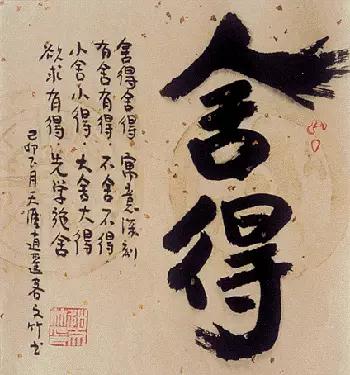 舍得
舍得舍得，寓意深刻
有舍有得，不舍不得
小舍小得，大舍大得
欲求有得，先学施舍
己卯月天涯逍遥客文竹书